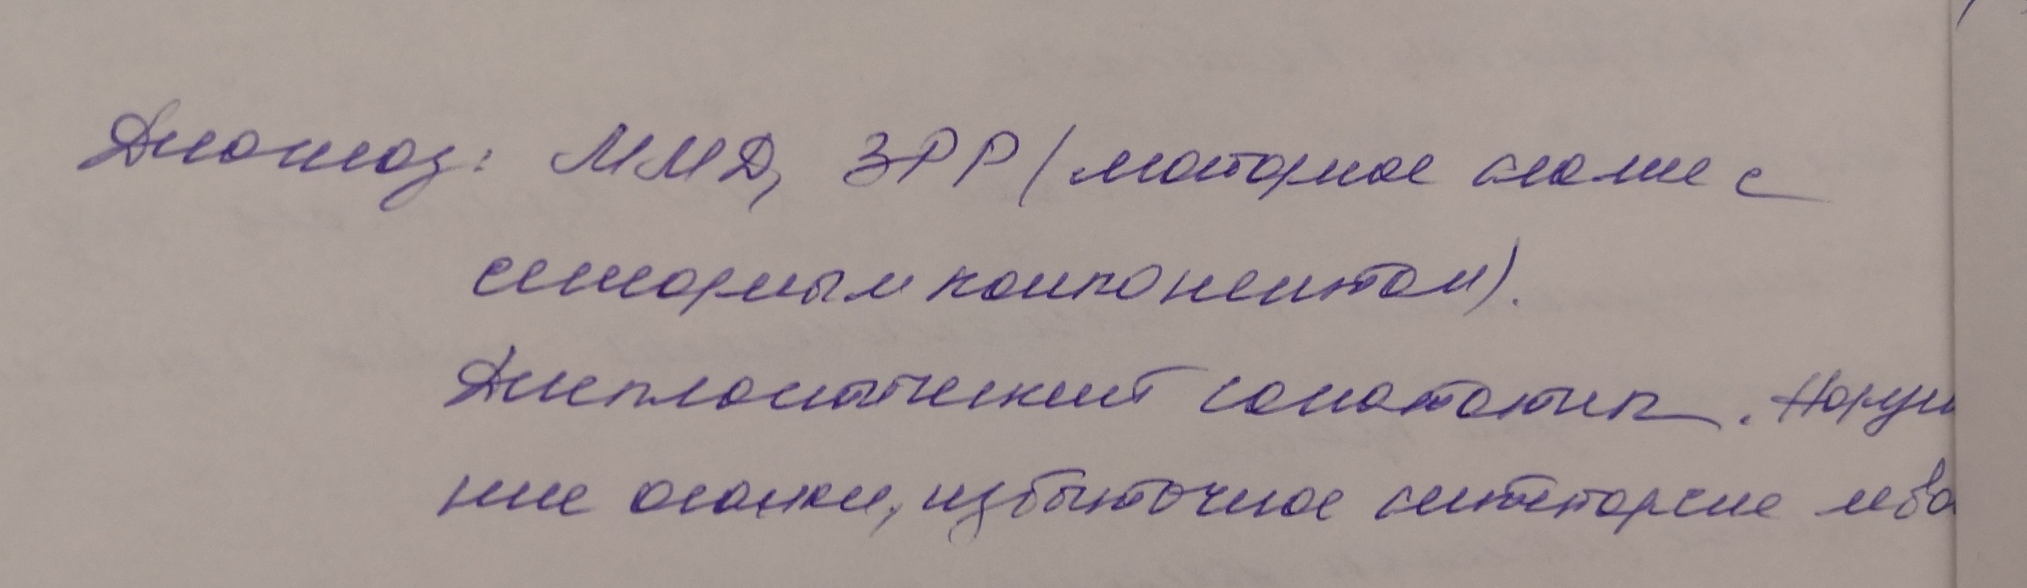 Диагноз: ММД, ЗРР (моторная алалия с
сенсорным компонентом).
Диспластический соматотип. Наруше
ние осанки, избыточное лево